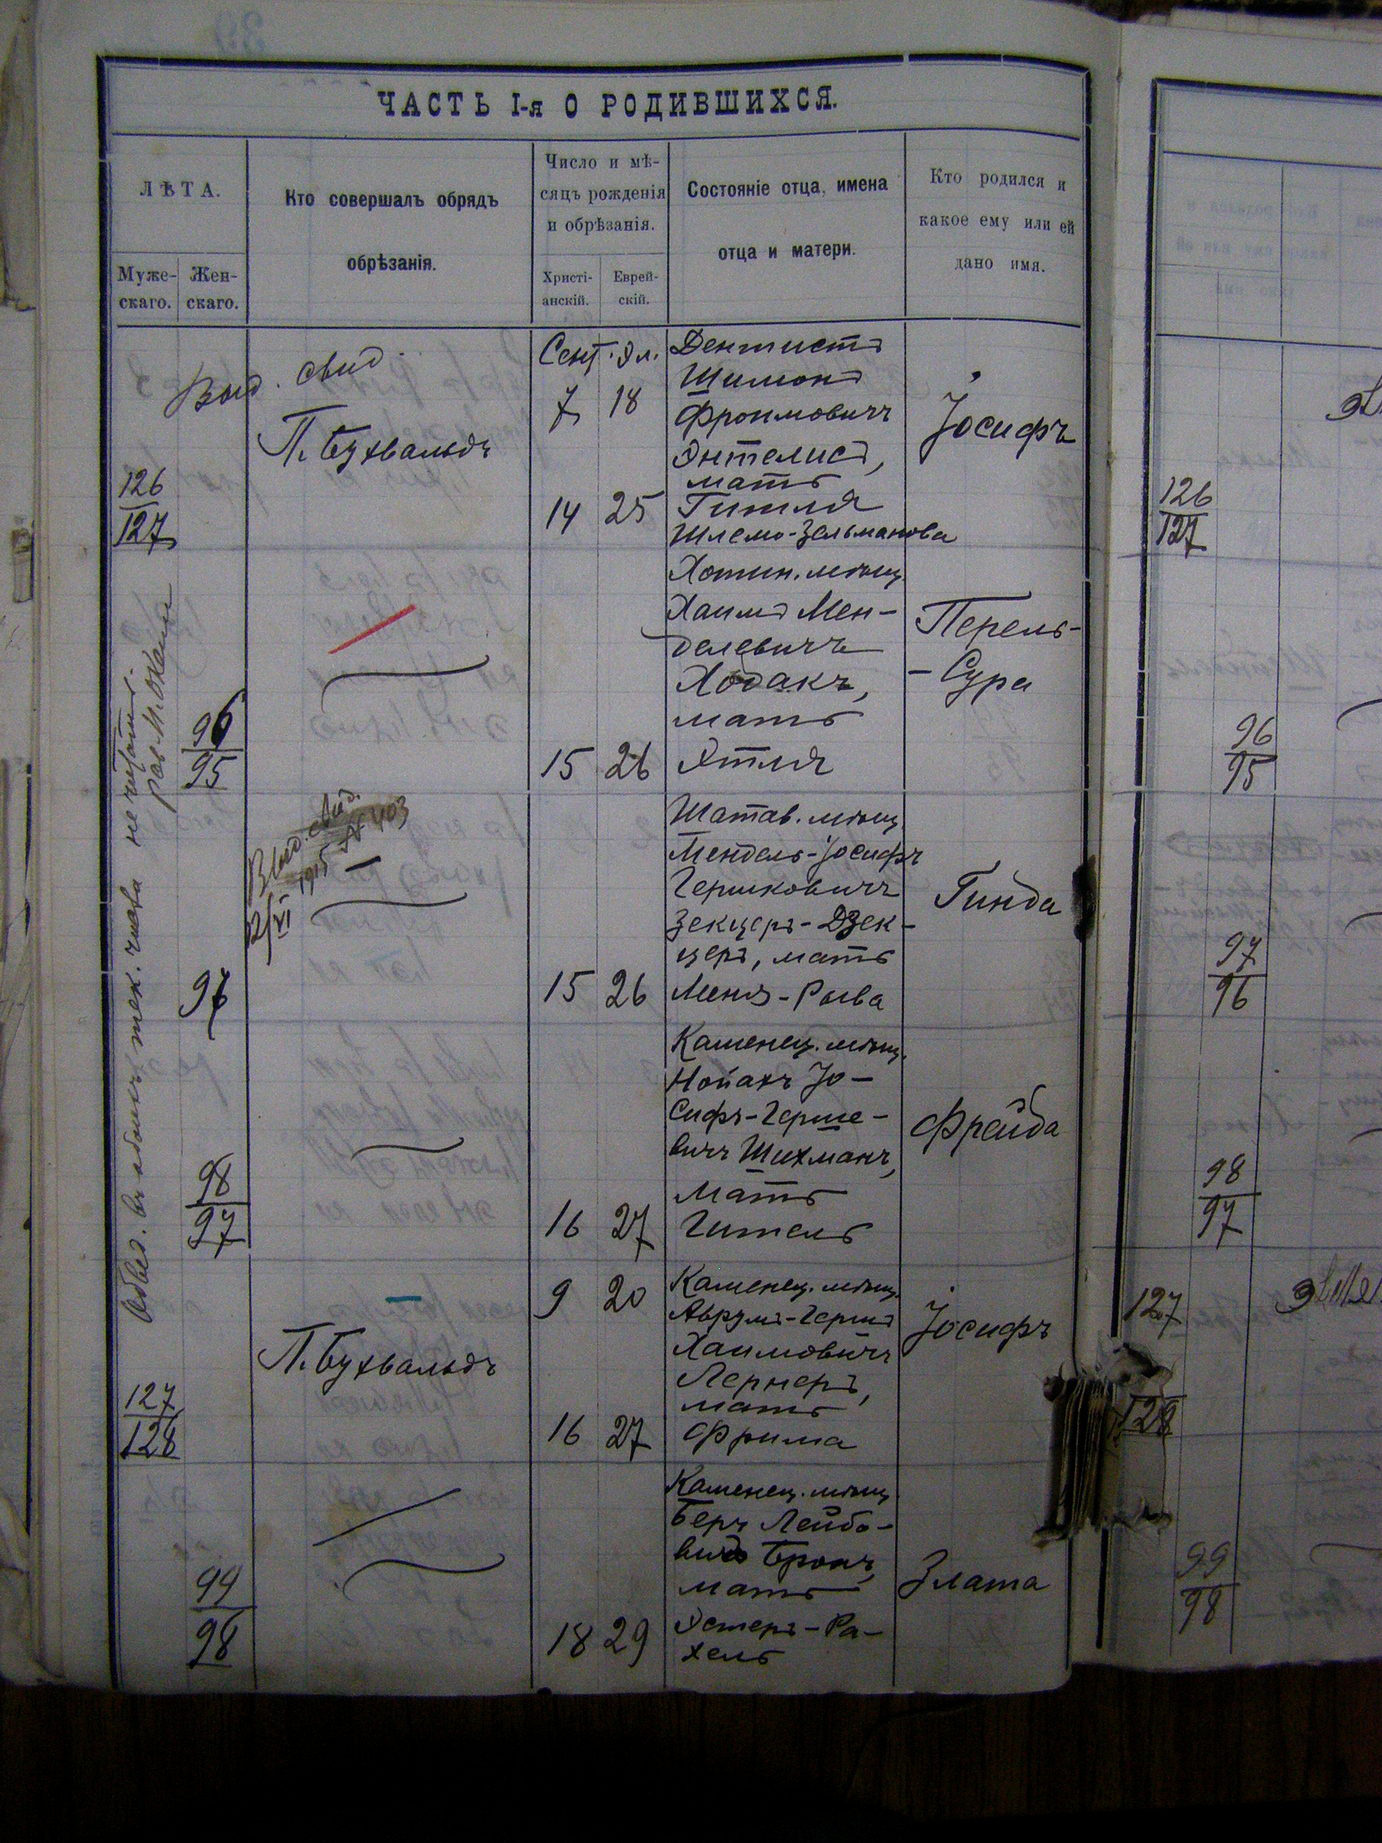 ЧАСТЬ I-я О РОДИВШИХСЯ.
ЛѢТА.
Муже-
скаго.
Жен-
скаго.
Кто совершалъ обрядъ
обрѣзанія.
Число и мѣ-
сяцъ рожденія
и обрѣзанія.
Христі-
анскій.
Еврей-
скій.
Состояніе отца, имена
отца и матери.
Кто родился и
какое ему или ей
дано имя.
Выд. свид.
126
127
П. Бухвальдъ
Сент. Эл.
7 18
14 25
Дентистъ
Шимонъ
Фроимовичъ
Энтелисъ,
мать
Гитля
Шлемо-Зельманова
Іосифъ
96
95
15 26
Хотин. мѣщ.
Хаимъ Мен-
делевичъ
Ходакъ,
мать
Этля
Перель-
-Сура
Выд. свид.
12/VI 1915 № 403
96
15 26
Шатав. мѣщ.
Мендель-Іосифъ
Гершковичъ
Зекцеръ-Дзек-
церъ, мать
Меня-Рыва
Гинда
98
97
16 27
Каменец. мѣщ.
Нойахъ Іо-
сифъ-Герше-
вичъ Шихманъ,
Мать
Гитель
Фрейда
127
128
П. Бухвальдъ
9 20
16 27
Каменец. мѣщ.
Аврумъ-Гершъ
Хаимовичъ
Лернеръ,
мать
Фрима
Іосифъ
99
98
18 29
Каменец. мѣщ.
Беръ Лейбо-
вичъ Бронъ,
мать
Эстеръ-Ра-
хель
Злата
не читать.
126
127
96
95
97
96
98
97
127
128
99
98